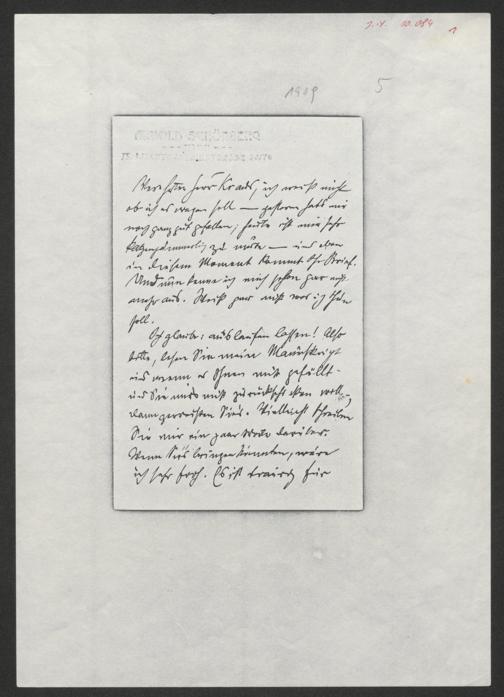 1909 5
Verehrter Herr Kraus, ich weiß nicht
ob ich es wagen soll — gestern hat's mir
noch ganz gut gefallen; heute ist mir sehr
katzenjämmerlich zu mute — und eben
in diesem Moment kommt Ihr Brief.
Und nun kenne ich mich schon gar nicht
mehr aus. Weiß gar nicht was ich thun
soll.
Ich glaube: auslaufen lassen! Also
bitte, lesen Sie mein Manuskript
und wenn es Ihnen nicht gefällt
und Sie mirs nicht zurückschicken wollen,
dann zerreißen Sie's. Vielleicht schreiben
Sie mir ein paar Worte darüber.
Wenn Sie's bringen könnten, wäre
ich sehr froh. Es ist traurig für